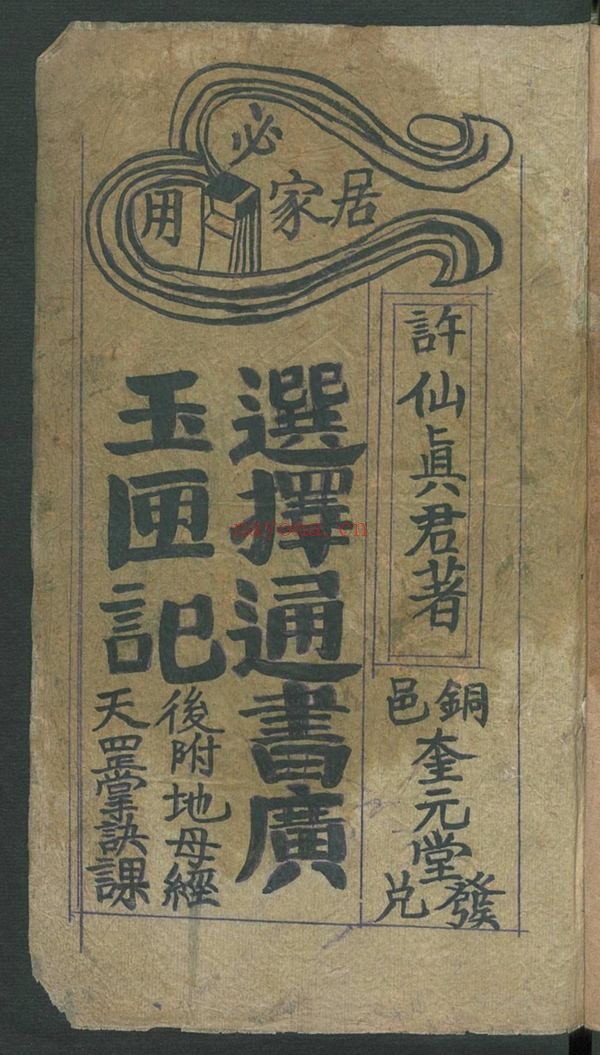 居家必用
許仙眞君著
銅邑奎元堂發兌
選擇通書廣
玉匣記
後附地母經
天罡掌訣課